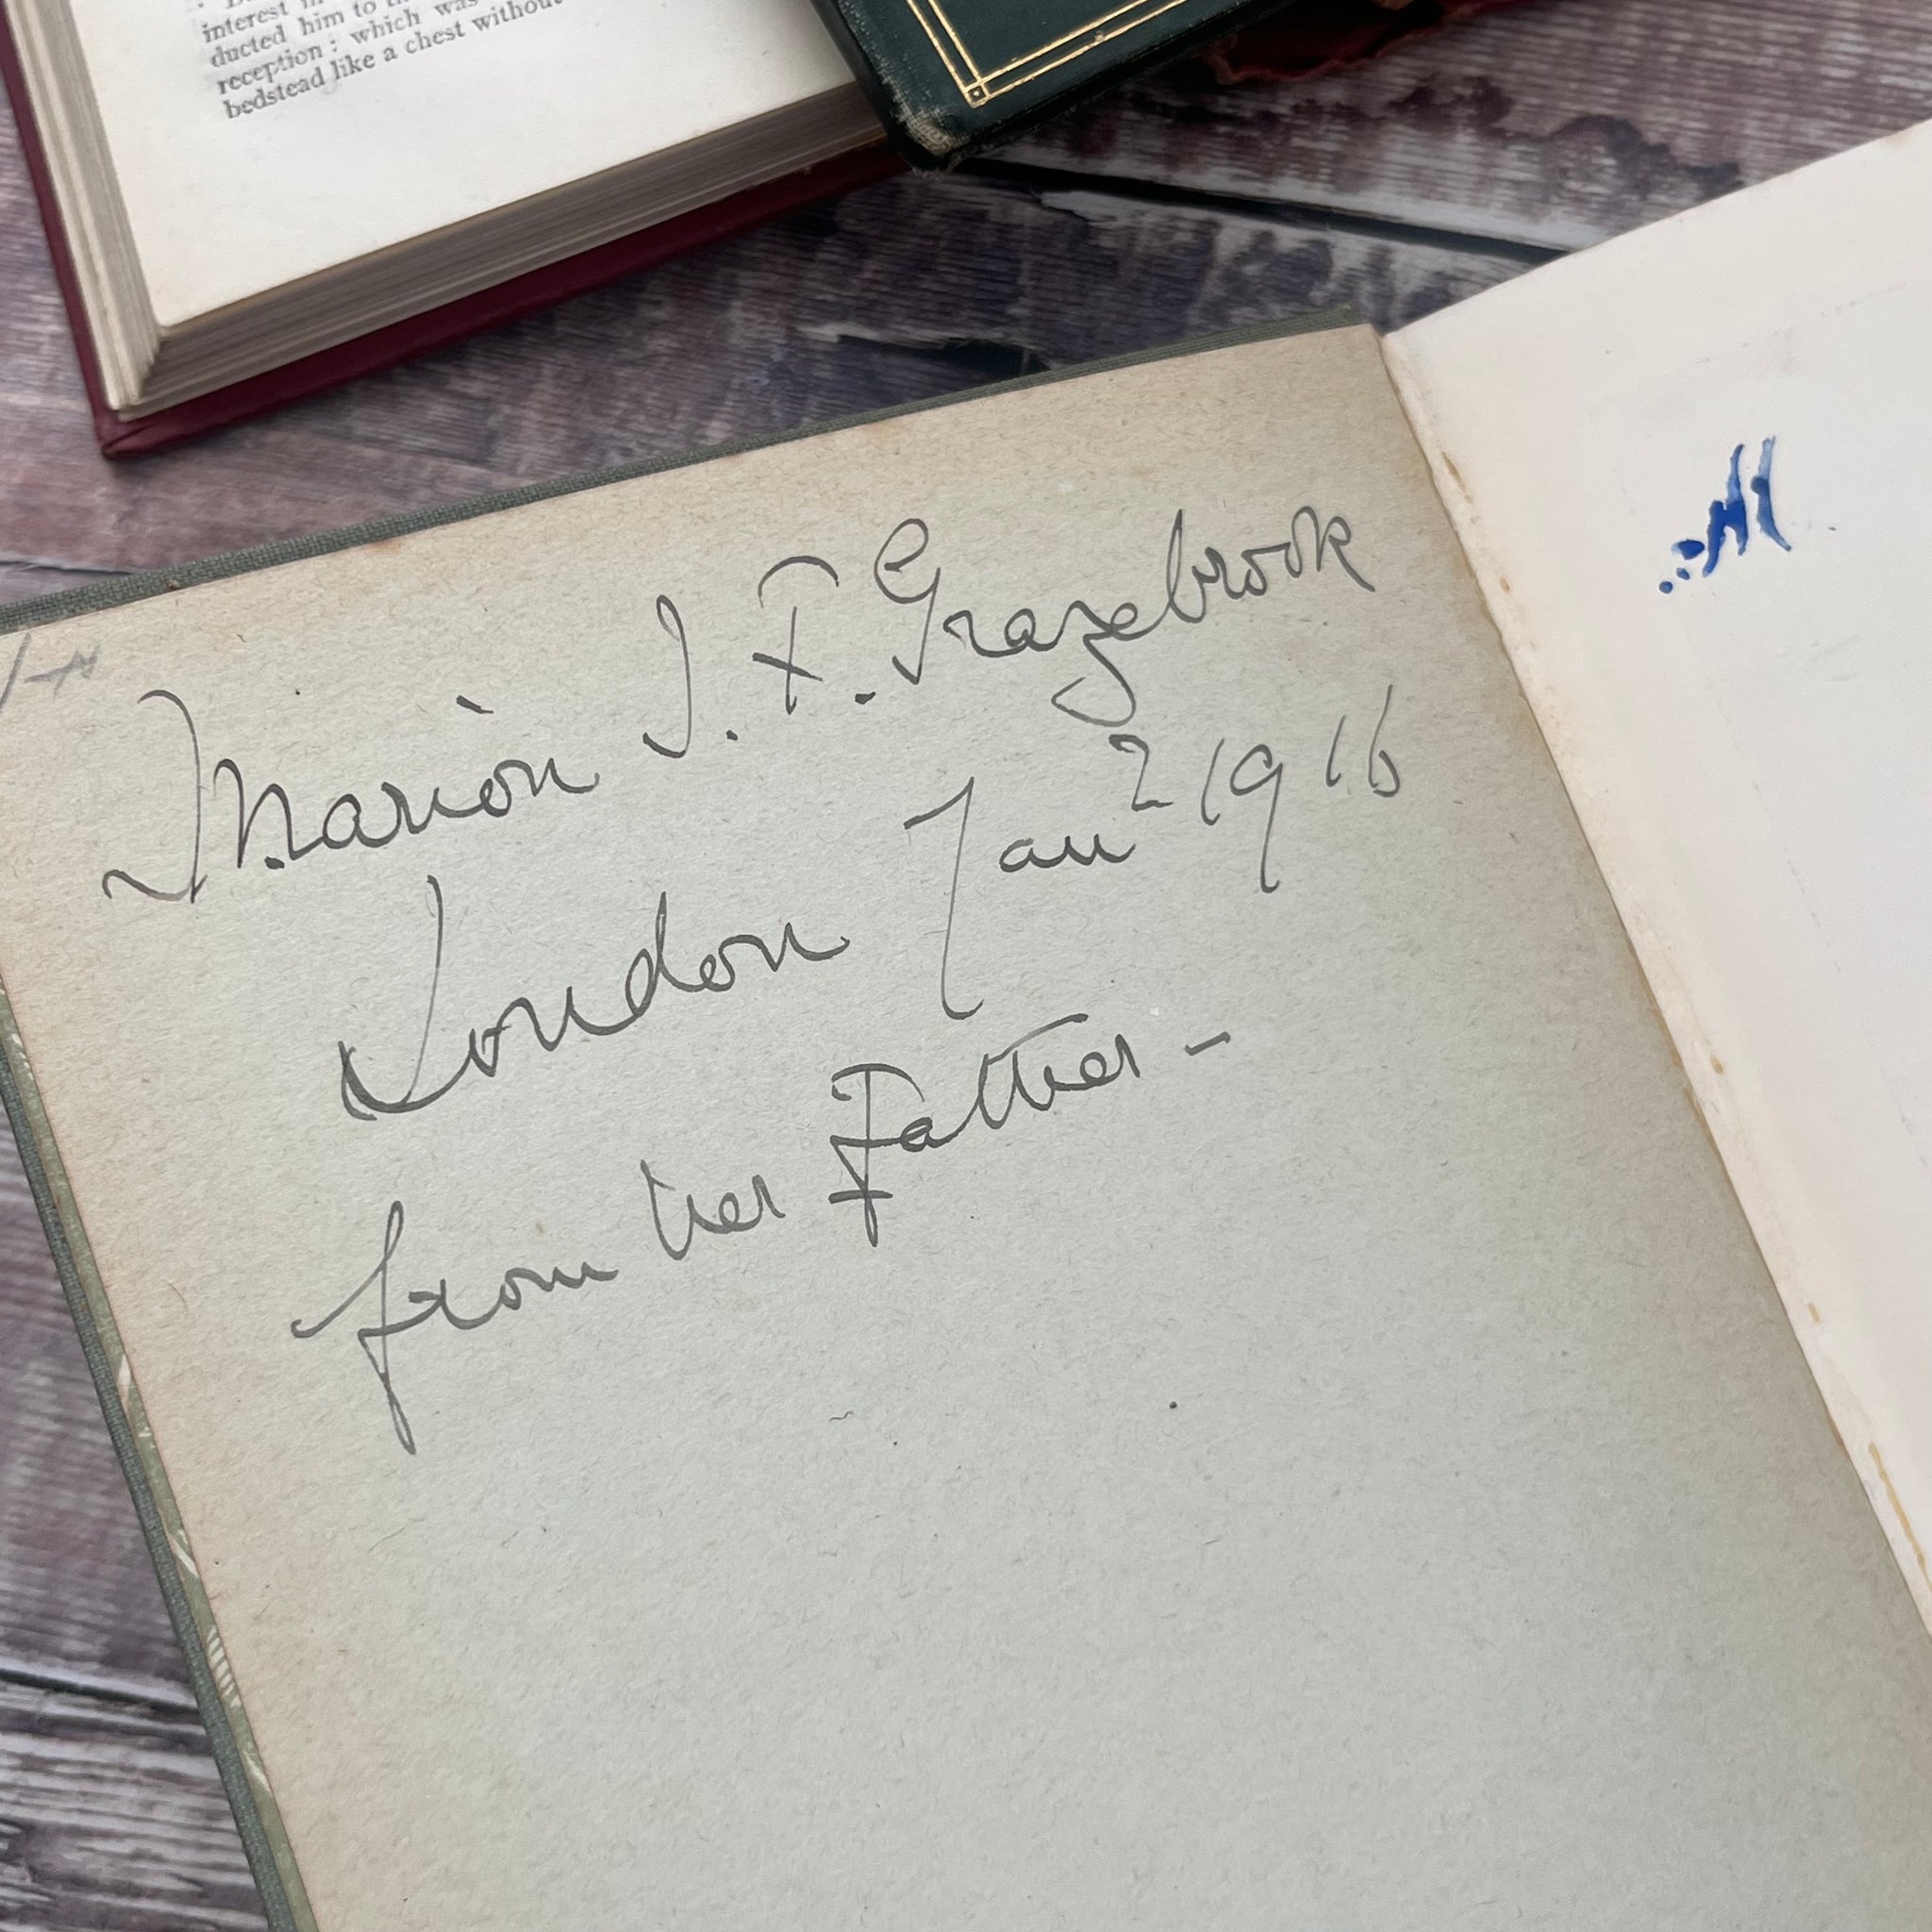 interest
ducted him to
reception : which was
bedstead like a chest without
Marion J. F. Grazebrook
London Jan 2 1916
from her Father -